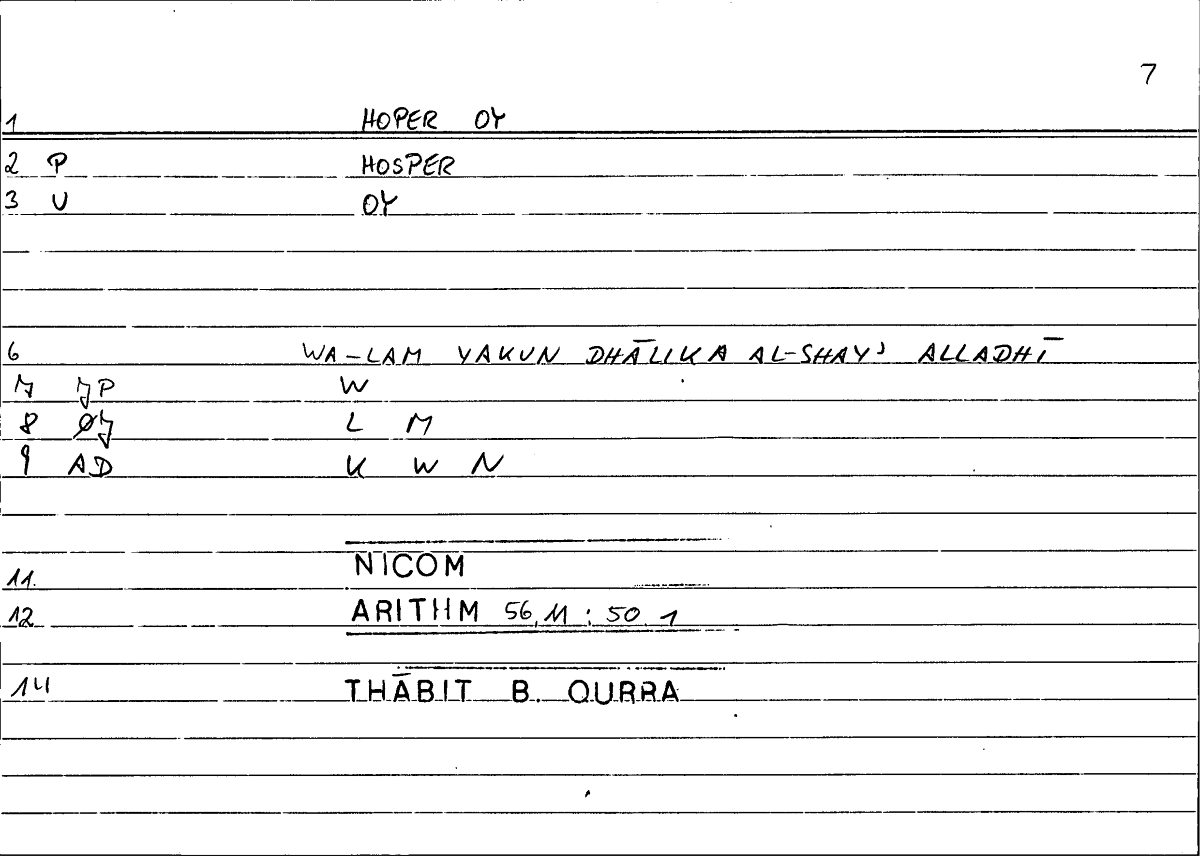 7
1 HOPER OY
2 P HOSPER
3 U OY
6 WA-LAM YAKUN DHĀLIKA AL-SHAYʾ ALLADHĪ
7 JP W
8 ØJ L M
9 AD K W N
11. NICOM
12 ARITHM 56,11 : 50.1
14 THĀBIT B. QURRA